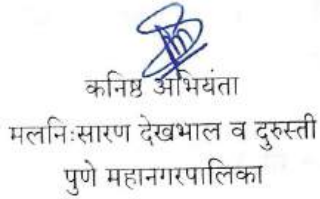 कनिष्ठ अभियंता
मलनिःसारण देखभाल व दुरुस्ती
पुणे महानगरपालिका